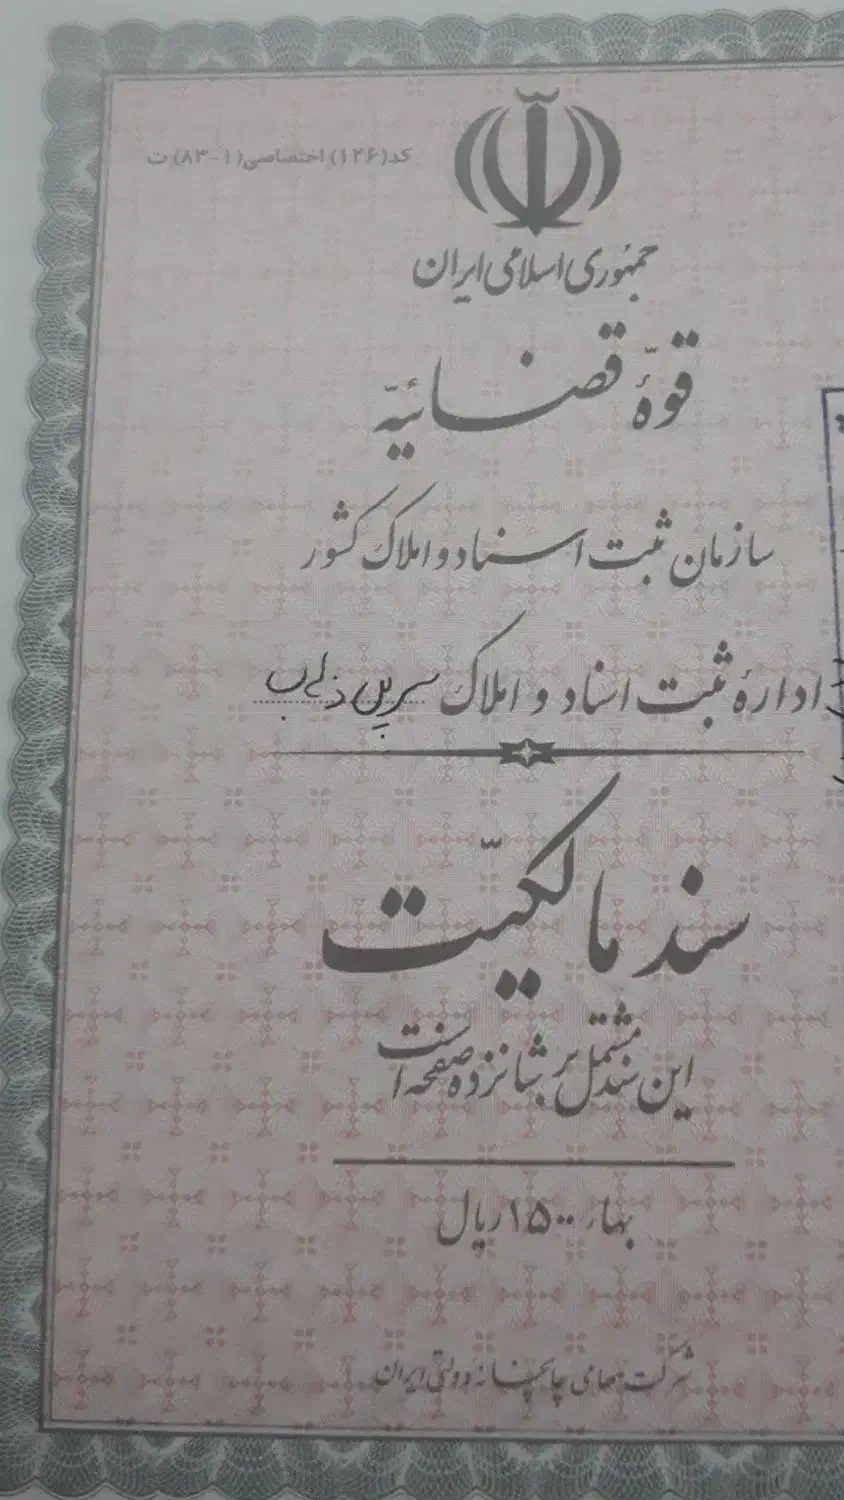 کد(۱۲۶) اختصاصی(۱-۸۳) ت
جمهوری اسلامی ایران
قوّهٔ قضائیّه
سازمان ثبت اسناد و املاک کشور
ادارهٔ ثبت اسناد و املاک سرپل ذهاب
سند مالکیّت
این سند مشتمل بر شانزده صفحه است
بهاء ۱۵۰۰ ریال
شرکت سهامی چاپخانه دولتی ایران